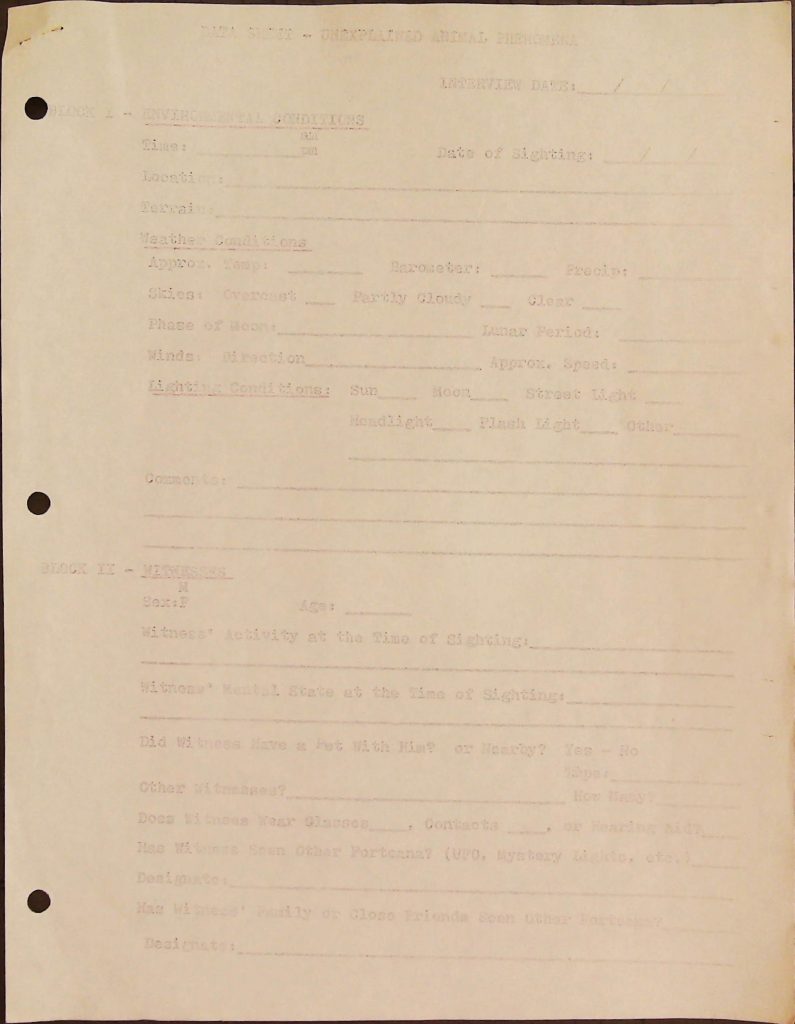 DATA SHEET - UNEXPLAINED ANIMAL PHENOMENA
INTERVIEW DATE:___/___/___
BLOCK I - ENVIRONMENTAL CONDITIONS
AM
Time: __________ PM Date of Sighting: ___/___/___
Location:__________
Terrain:__________
Weather Conditions
Approx. Temp: ________ Barometer: ______ Precip: __________
Skies: Overcast ___ Partly Cloudy ___ Clear ____
Phase of Moon:__________ Lunar Period: __________
Winds: Direction__________ Approx. Speed: __________
Lighting Conditions: Sun____ Moon____ Street Light ____
Headlight____ Flash Light____ Other______
__________
Comments: __________
__________
__________
BLOCK II - WITNESSES
M
Sex:F Age: _______
Witness' Activity at the Time of Sighting:__________
__________
Witness' Mental State at the Time of Sighting:__________
__________
Did Witness Have a Pet With Him? or Nearby? Yes - No
Type:__________
Other Witnesses?__________ How Many?________
Does Witness Wear Glasses____, Contacts ____, or Hearing Aid?____
Has Witness Seen Other Forteana? (UFO, Mystery Lights, etc.)_____
Designate:__________
Has Witness' Family or Close Friends Seen Other Forteana?________
Designate:__________